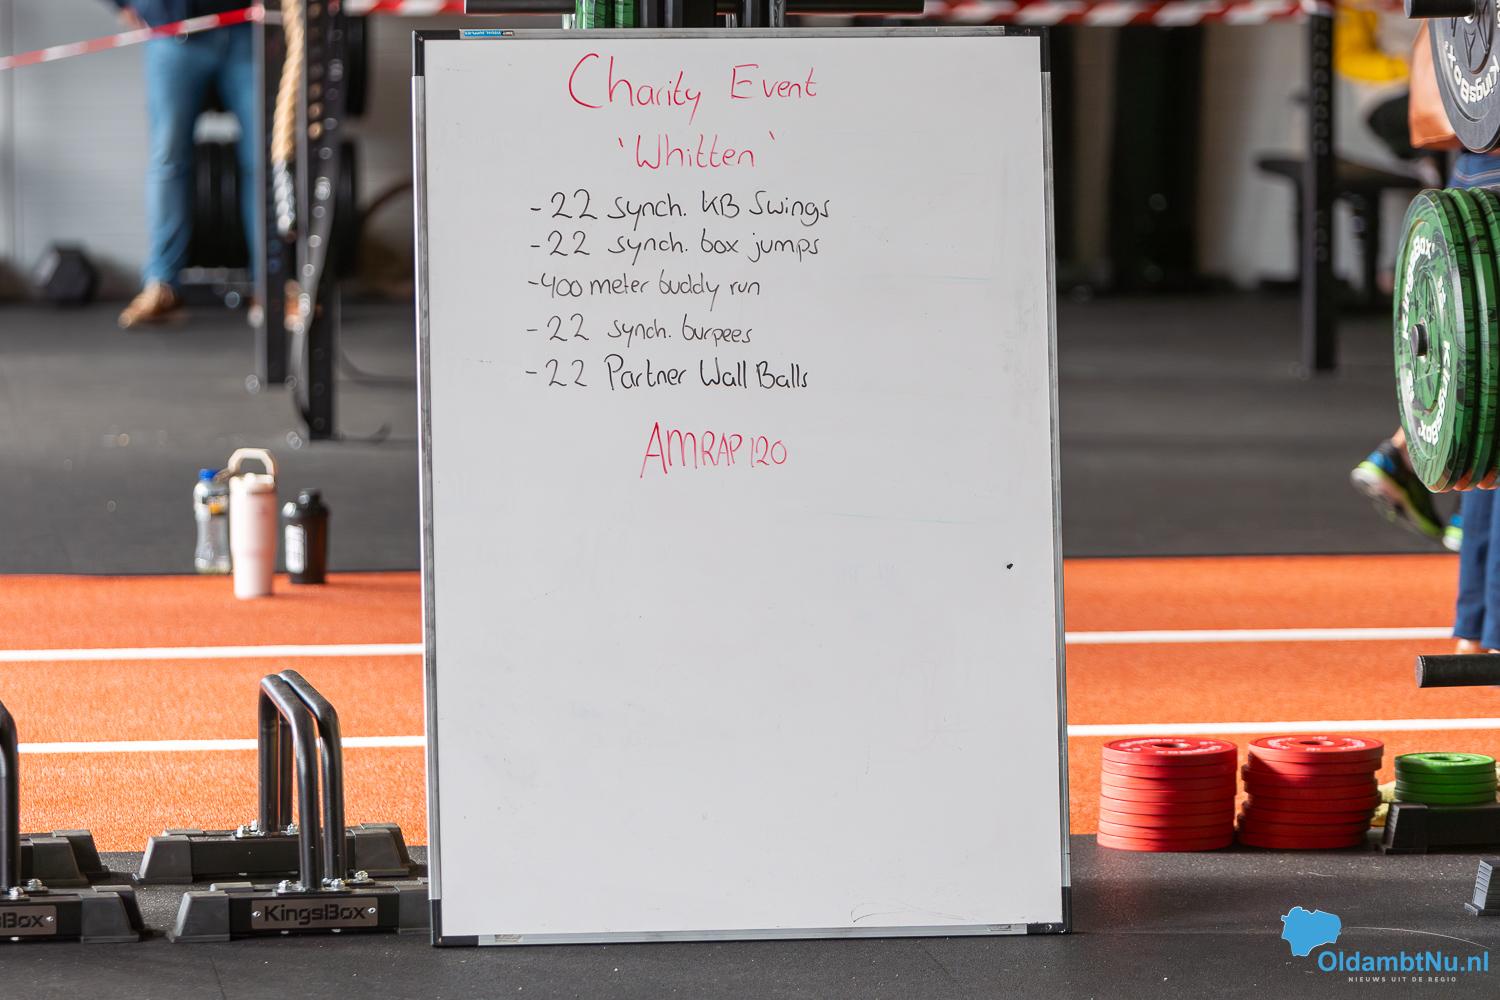 Charity Event
'Whitten'
- 22 synch. KB Swings
- 22 synch. box jumps
- 400 meter buddy run
- 22 synch. burpees
- 22 Partner Wall Balls
AMRAP 120
KingsBox
KingsBox
KingsBox
OldambtNu.nl
NIEUWS UIT DE REGIO